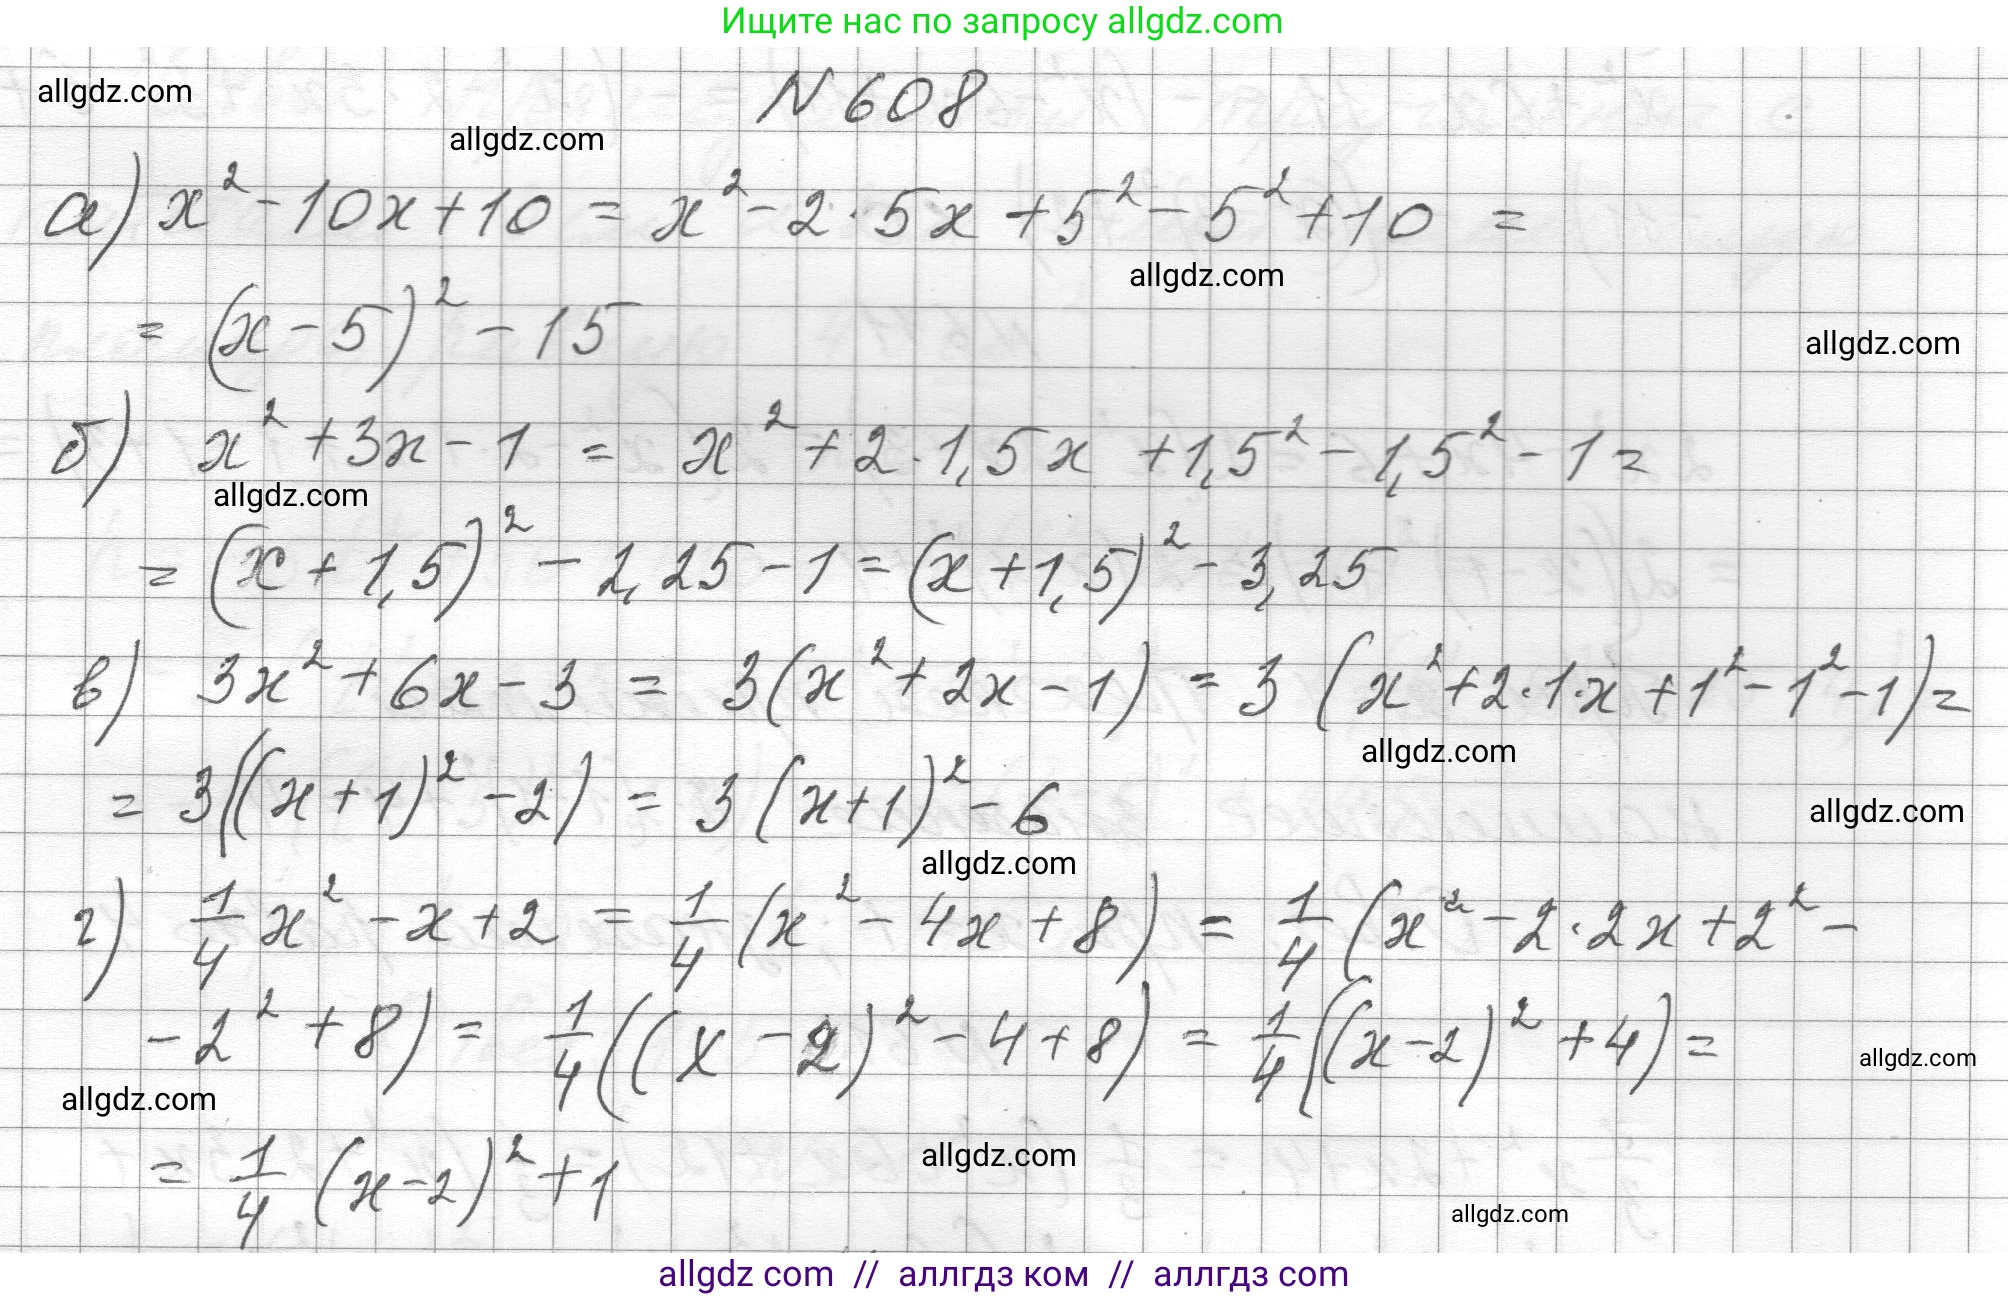 Ищите нас по запросу allgdz.com
allgdz.com
N 608
allgdz.com
а) x² - 10x + 10 = x² - 2 · 5x + 5² - 5² + 10 =
allgdz.com
= (x - 5)² - 15
allgdz.com
б) x² + 3x - 1 = x² + 2 · 1,5x + 1,5² - 1,5² - 1 =
allgdz.com
= (x + 1,5)² - 2,25 - 1 = (x + 1,5)² - 3,25
в) 3x² + 6x - 3 = 3(x² + 2x - 1) = 3(x² + 2 · 1 · x + 1² - 1² - 1) =
allgdz.com
= 3((x + 1)² - 2) = 3(x + 1)² - 6
allgdz.com
allgdz.com
г) 1/4 x² - x + 2 = 1/4 (x² - 4x + 8) = 1/4 (x² - 2 · 2x + 2² -
- 2² + 8) = 1/4 ((x - 2)² - 4 + 8) = 1/4 ((x - 2)² + 4) =
allgdz.com
allgdz.com
= 1/4 (x - 2)² + 1
allgdz.com
allgdz.com
allgdz com // аллгдз ком // аллгдз com